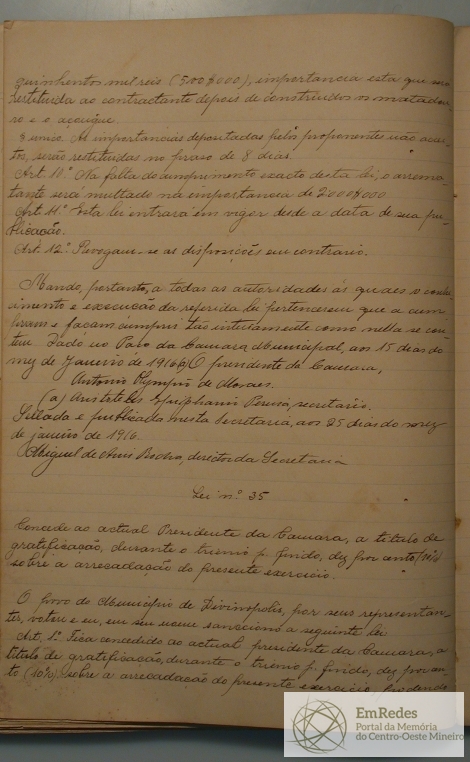 quinhentos mil reis (500$000), importancia esta que será
restituida ao contractante depois de construidos os matadou-
ro e o açougue.
§ unico. As importancias depositadas pelos proponentes não accei-
tos, serão restituidas no praso de 8 dias.
Art. 10.º Na falta do cumprimento exacto desta lei, o arrema-
tante será multado na importancia de 200$000.
Art. 11.º Esta lei entrará em vigor desde a data de sua pu-
blicação.
Art. 12.º Revogam-se as disposições em contrario.
Mando, portanto, a todas as autoridades ás quaes o conhe-
cimento e execução da referida lei pertencerem que a cum-
pram e façam cumprir tão inteiramente como nella se con-
tem. Dado no Paço da Camara Municipal, aos 15 dias do
mez de Janeiro de 1916. (a) O presidente da Camara,
Antonio Olympio de Moraes.
(a) Aristides Epiphanio Pereira, secretario.
Sellada e publicada nesta Secretaria, aos 25 dias do mez
de janeiro de 1916.
Miguel de director da Secretaria
Lei n.º 35
Concede ao actual Presidente da Camara, a titulo de
gratificação, durante o trienio p. findo, dez por cento (10%)
sobre a arrecadação do presente exercicio.
O povo do Municipio de Divinopolis, por seus representan-
tes, votou e eu, em seu nome sancciono a seguinte lei
Art. 1.º Fica concedido ao actual presidente da Camara, a
titulo de gratificação, durante o trienio p. findo, dez por cen-
to (10%) sobre a arrecadação do presente exercicio, podendo
EmRedes
Portal da Memória
do Centro-Oeste Mineiro